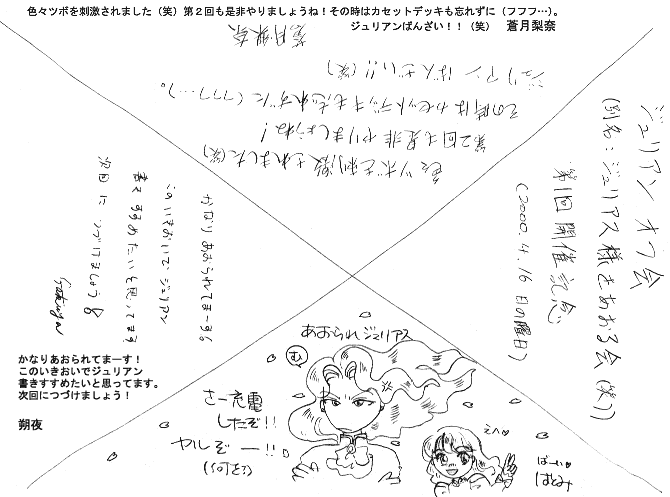 色々ツボを刺激されました（笑）第２回も是非やりましょうね！その時はカセットデッキも忘れずに（フフフ…）。
ジュリアンばんざい！！（笑）　蒼月梨奈
色々ツボを刺激されました(笑)
第2回も是非やりましょうね!
その時はカセットデッキも忘れずに(フフフ…)。
ジュリアンばんざい!!(笑)
蒼月梨奈
ジュリアン オフ会
(別名:ジュリアス様をあおる会(笑))
第1回開催記念
(2000.4.16 日の曜日)
かなりあおられてまーする
このいきおいでジュリアン
書きすすめたいと思ってます
次回につづけましょう
かなりあおられてまーす！
このいきおいでジュリアン
書きすすめたいと思ってます。
次回につづけましょう！
朔夜
あおられジュリアス
む
さー充電
したぞ!!
ヤルぞー!!。
(何を?)
えへ♡
ばーい♡
はとみ